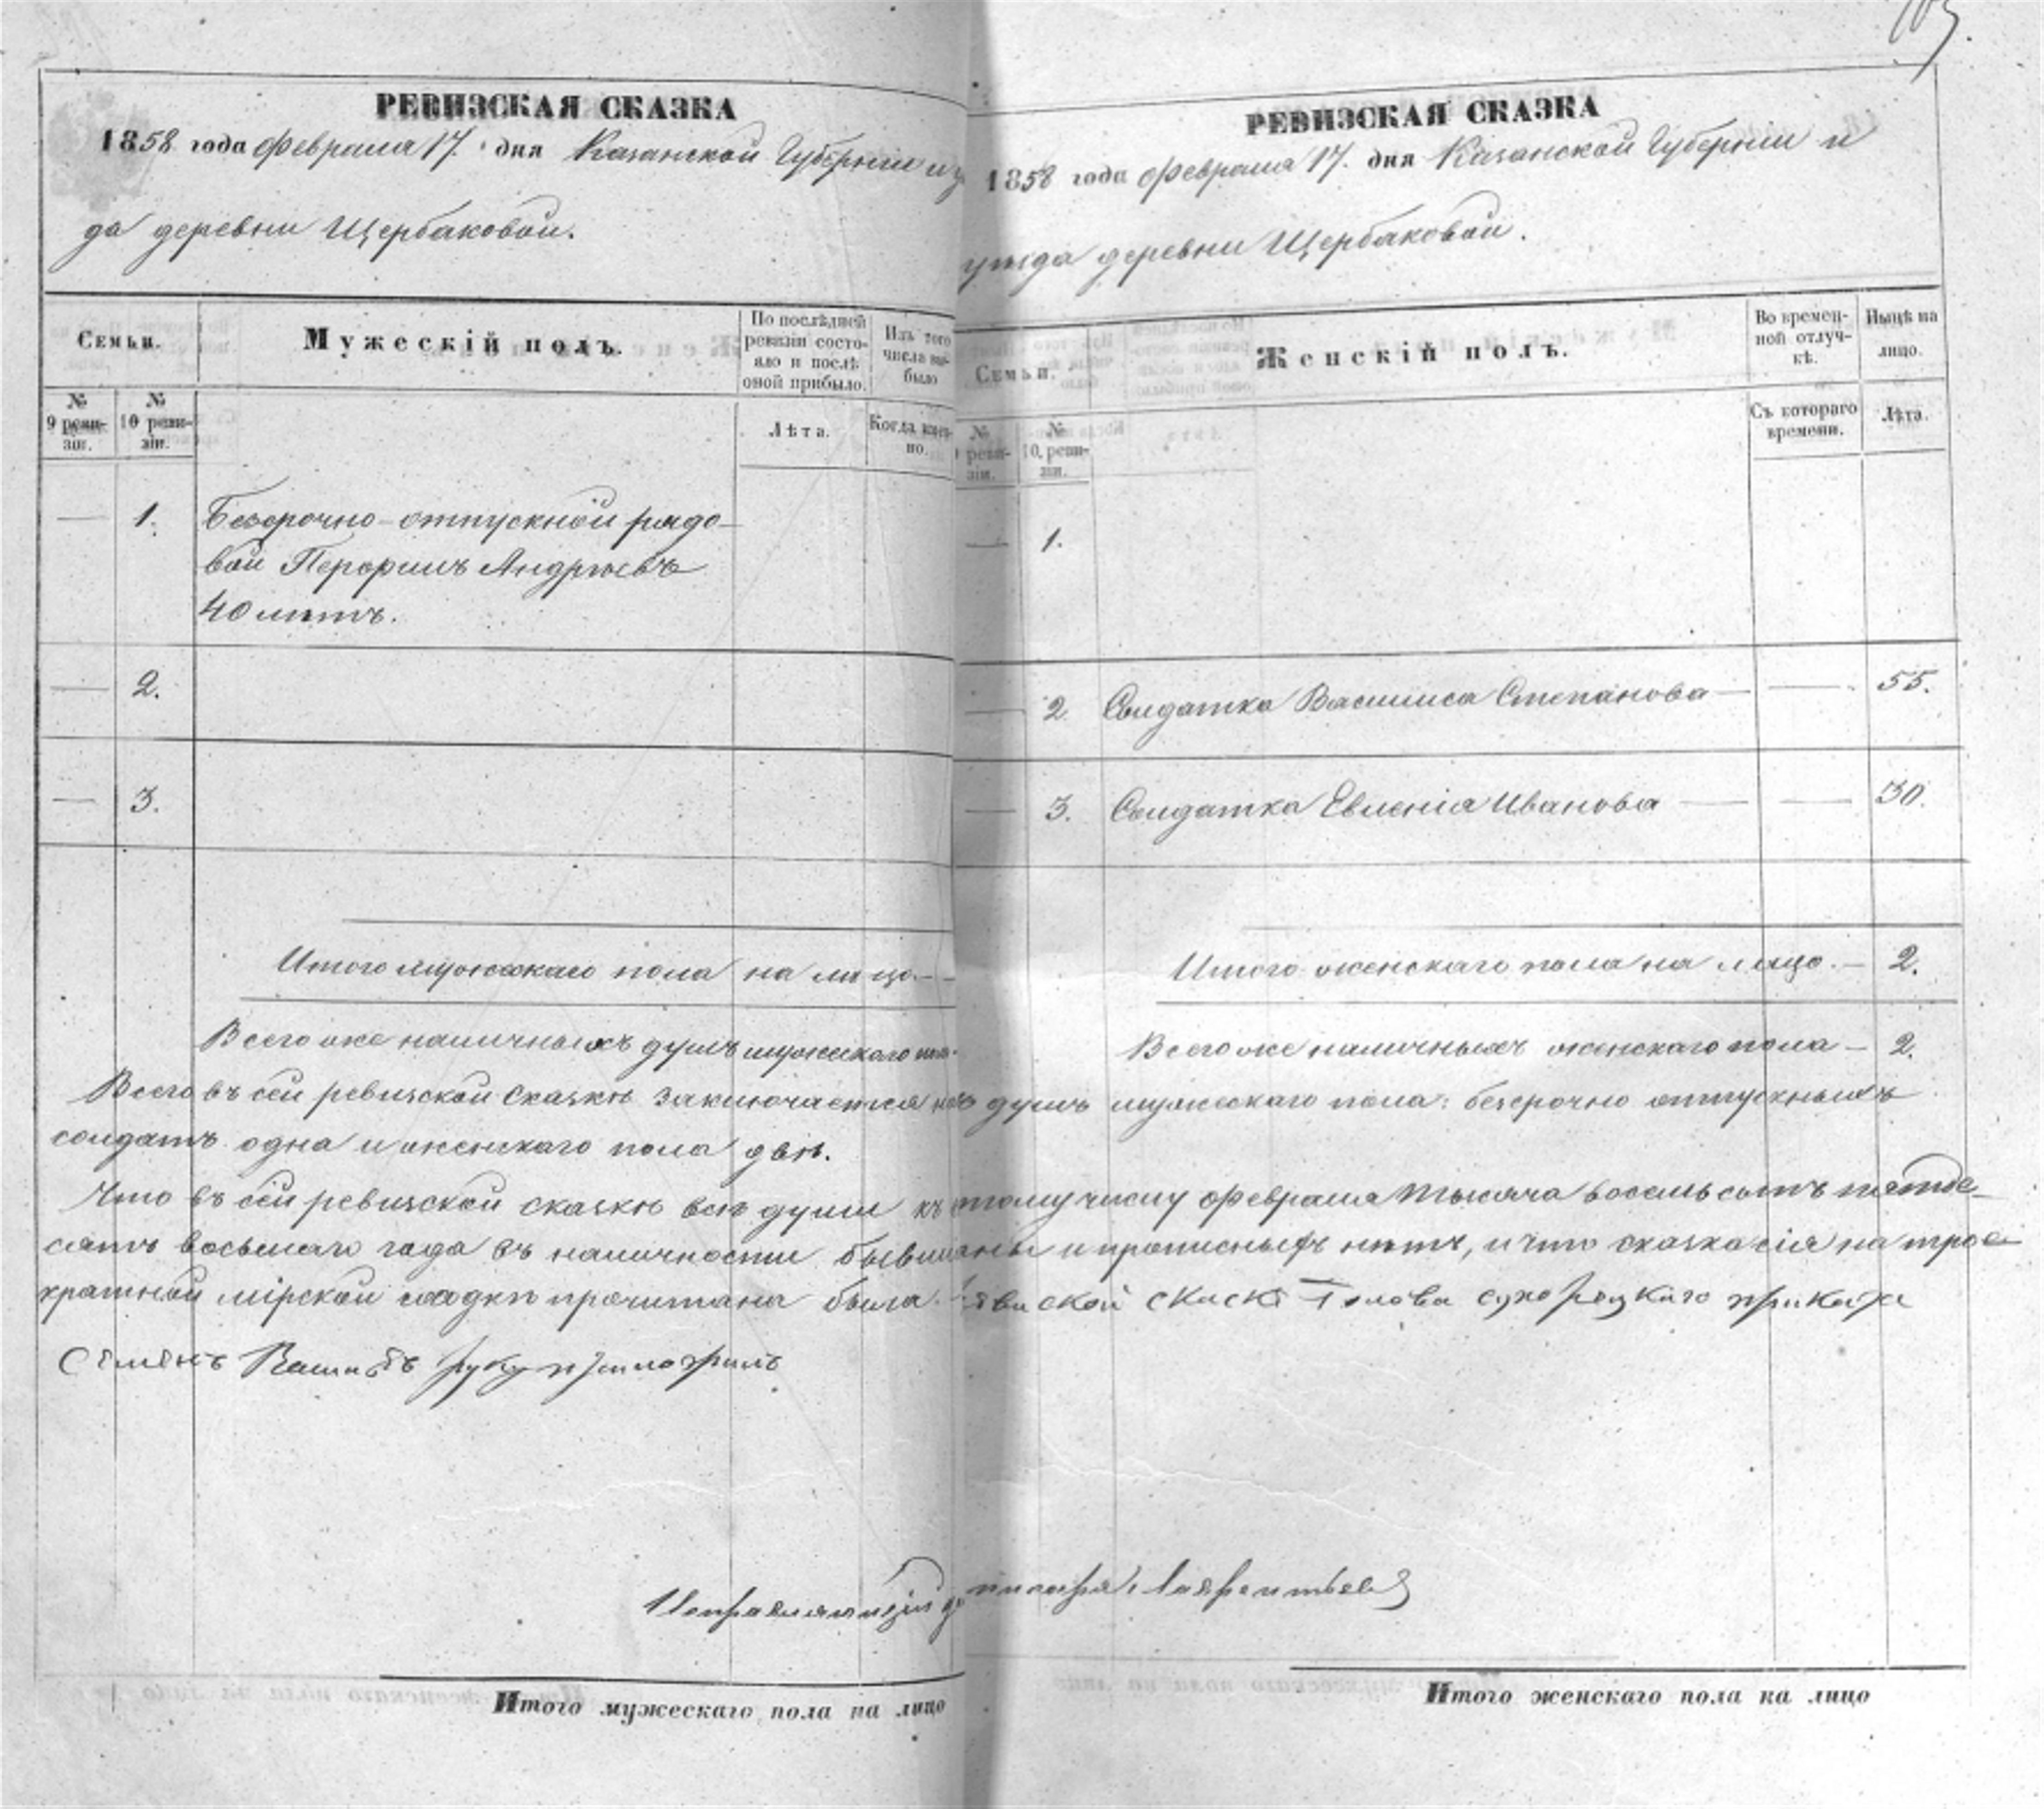 РЕВИЗСКАЯ СКАЗКА
1858 года Февраля 17. дня Казанской Губерніи и у
да деревни Щербаковой.
Семьи.
Мужескій полъ.
По послѣдней ревизіи состояло и послѣ оной прибыло.
Изъ того числа выбыло
№ 9 реви-зіи.
№ 10 реви-зіи.
Лѣта.
Когда имен-но.
— 1. Безсрочно-отпускной рядо-
вой Перфилъ Андреевъ
40 лѣтъ.
— 2.
— 3.
Итого мужескаго пола на лицо —
Всего же наличныхъ душъ мужескаго по-
РЕВИЗСКАЯ СКАЗКА
1858 года Февраля 17. дня Казанской Губерніи и
уѣзда деревни Щербаковой.
Семьи.
Женскій полъ.
Во времен-ной отлуч-кѣ.
Нынѣ на лицо.
№ реви-зіи.
№ 10. реви-зіи.
Съ котораго времени.
Лѣта.
— 1.
— 2 Солдатка Василиса Степанова — — 55.
— 3. Солдатка Евгенія Иванова — — 30.
Итого женскаго пола на лицо. — 2.
Всего же наличныхъ женскаго пола — 2.
Всего въ сей ревизской сказкѣ заключается душъ мужескаго пола: безсрочно отпускныхъ
солдатъ одна и женскаго пола двѣ.
Что въ сей ревизской сказкѣ всѣ души къ тому числу февраля тысяча восемь сотъ пятьде-
сятъ восьмаго года въ наличности бывшія и прописныхъ нѣтъ, и что сказка сія на трое-
кратной мірской сходкѣ прочитана была. скаскѣ Голова сухорецкаго приказа
Семенъ руку приложилъ
Исправляющій писаря Лаврентьевъ
Итого мужескаго пола на лицо
Итого женскаго пола на лицо